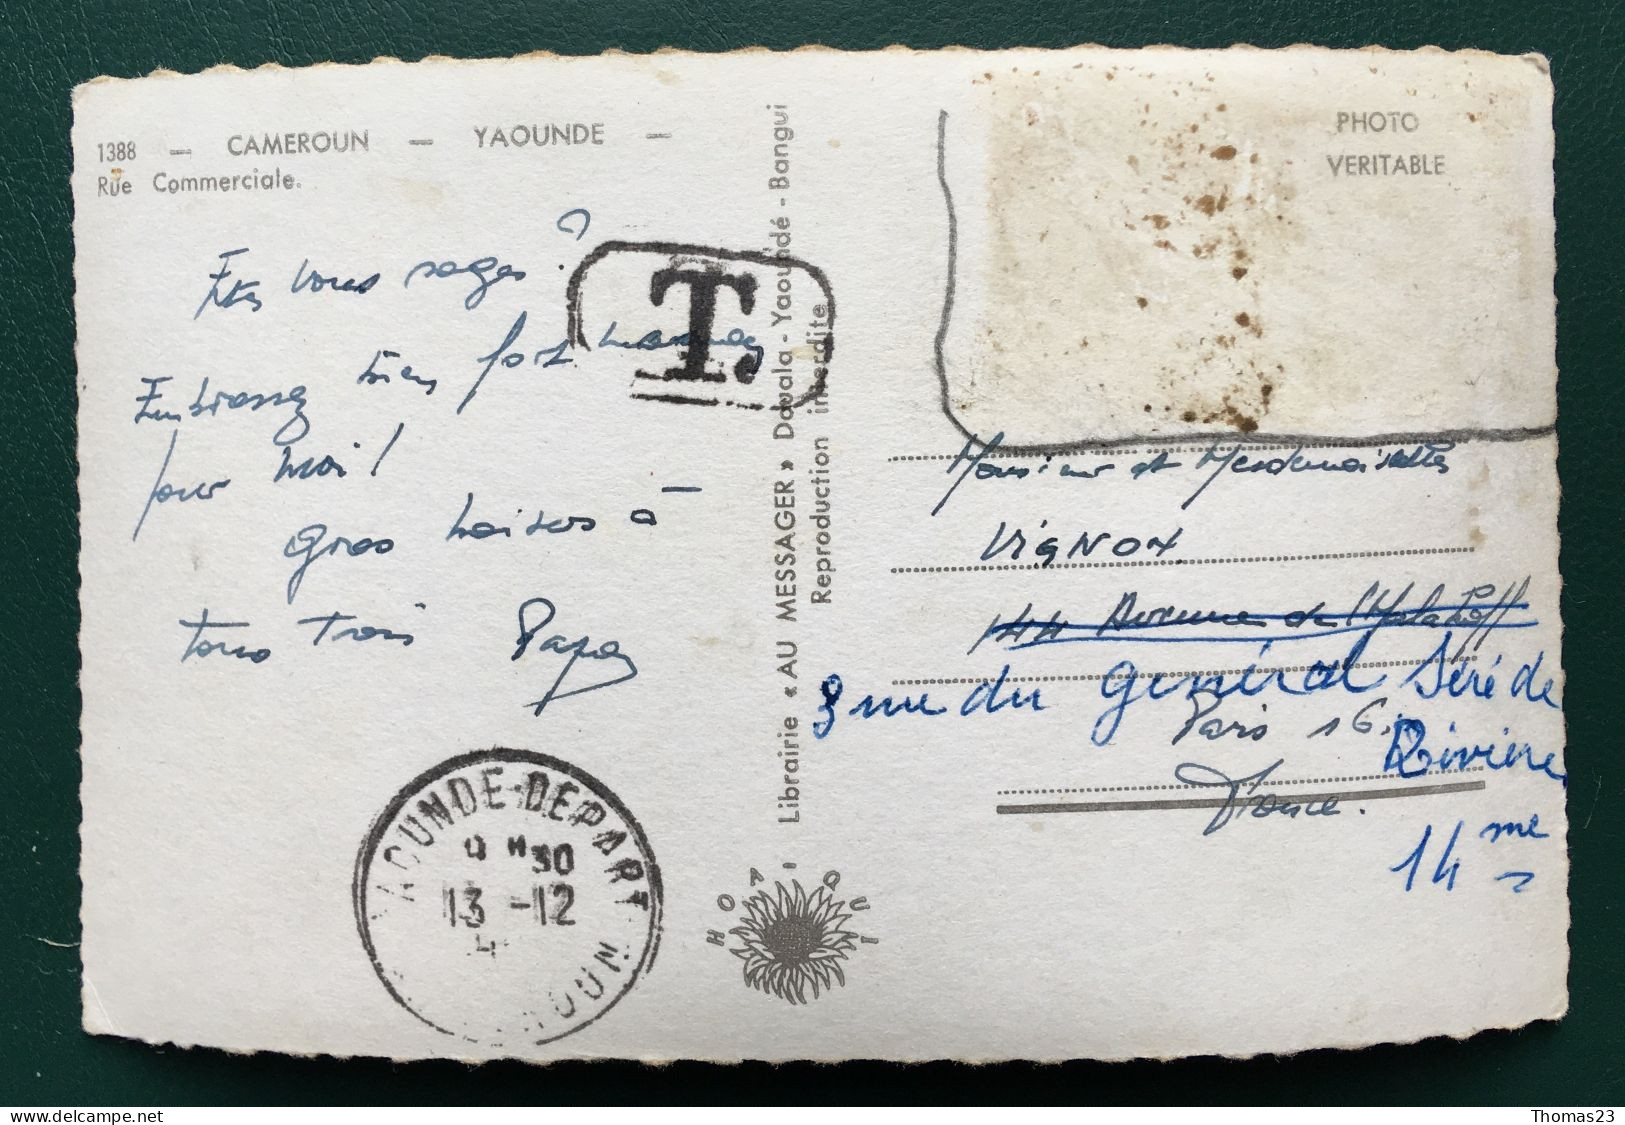 1388 — CAMEROUN — YAOUNDE —
Rue Commerciale.
Etes vous sages ?
Embrassez bien fort maman
pour moi !
Gros baisers à —
tous trois Papa
T.
YAOUNDE-DEPART
H 30
13 -12
4
Librairie « AU MESSAGER » Douala - Yaoundé - Bangui
Reproduction interdite
HOA-QUI
PHOTO
VERITABLE
Monsieur et Mesdemoiselles
VIGNOX
144 Avenue de Malakoff
8 rue du Général Séré de
Paris 16.
Rivière
France.
14me
Delcampe.net
Thomas23